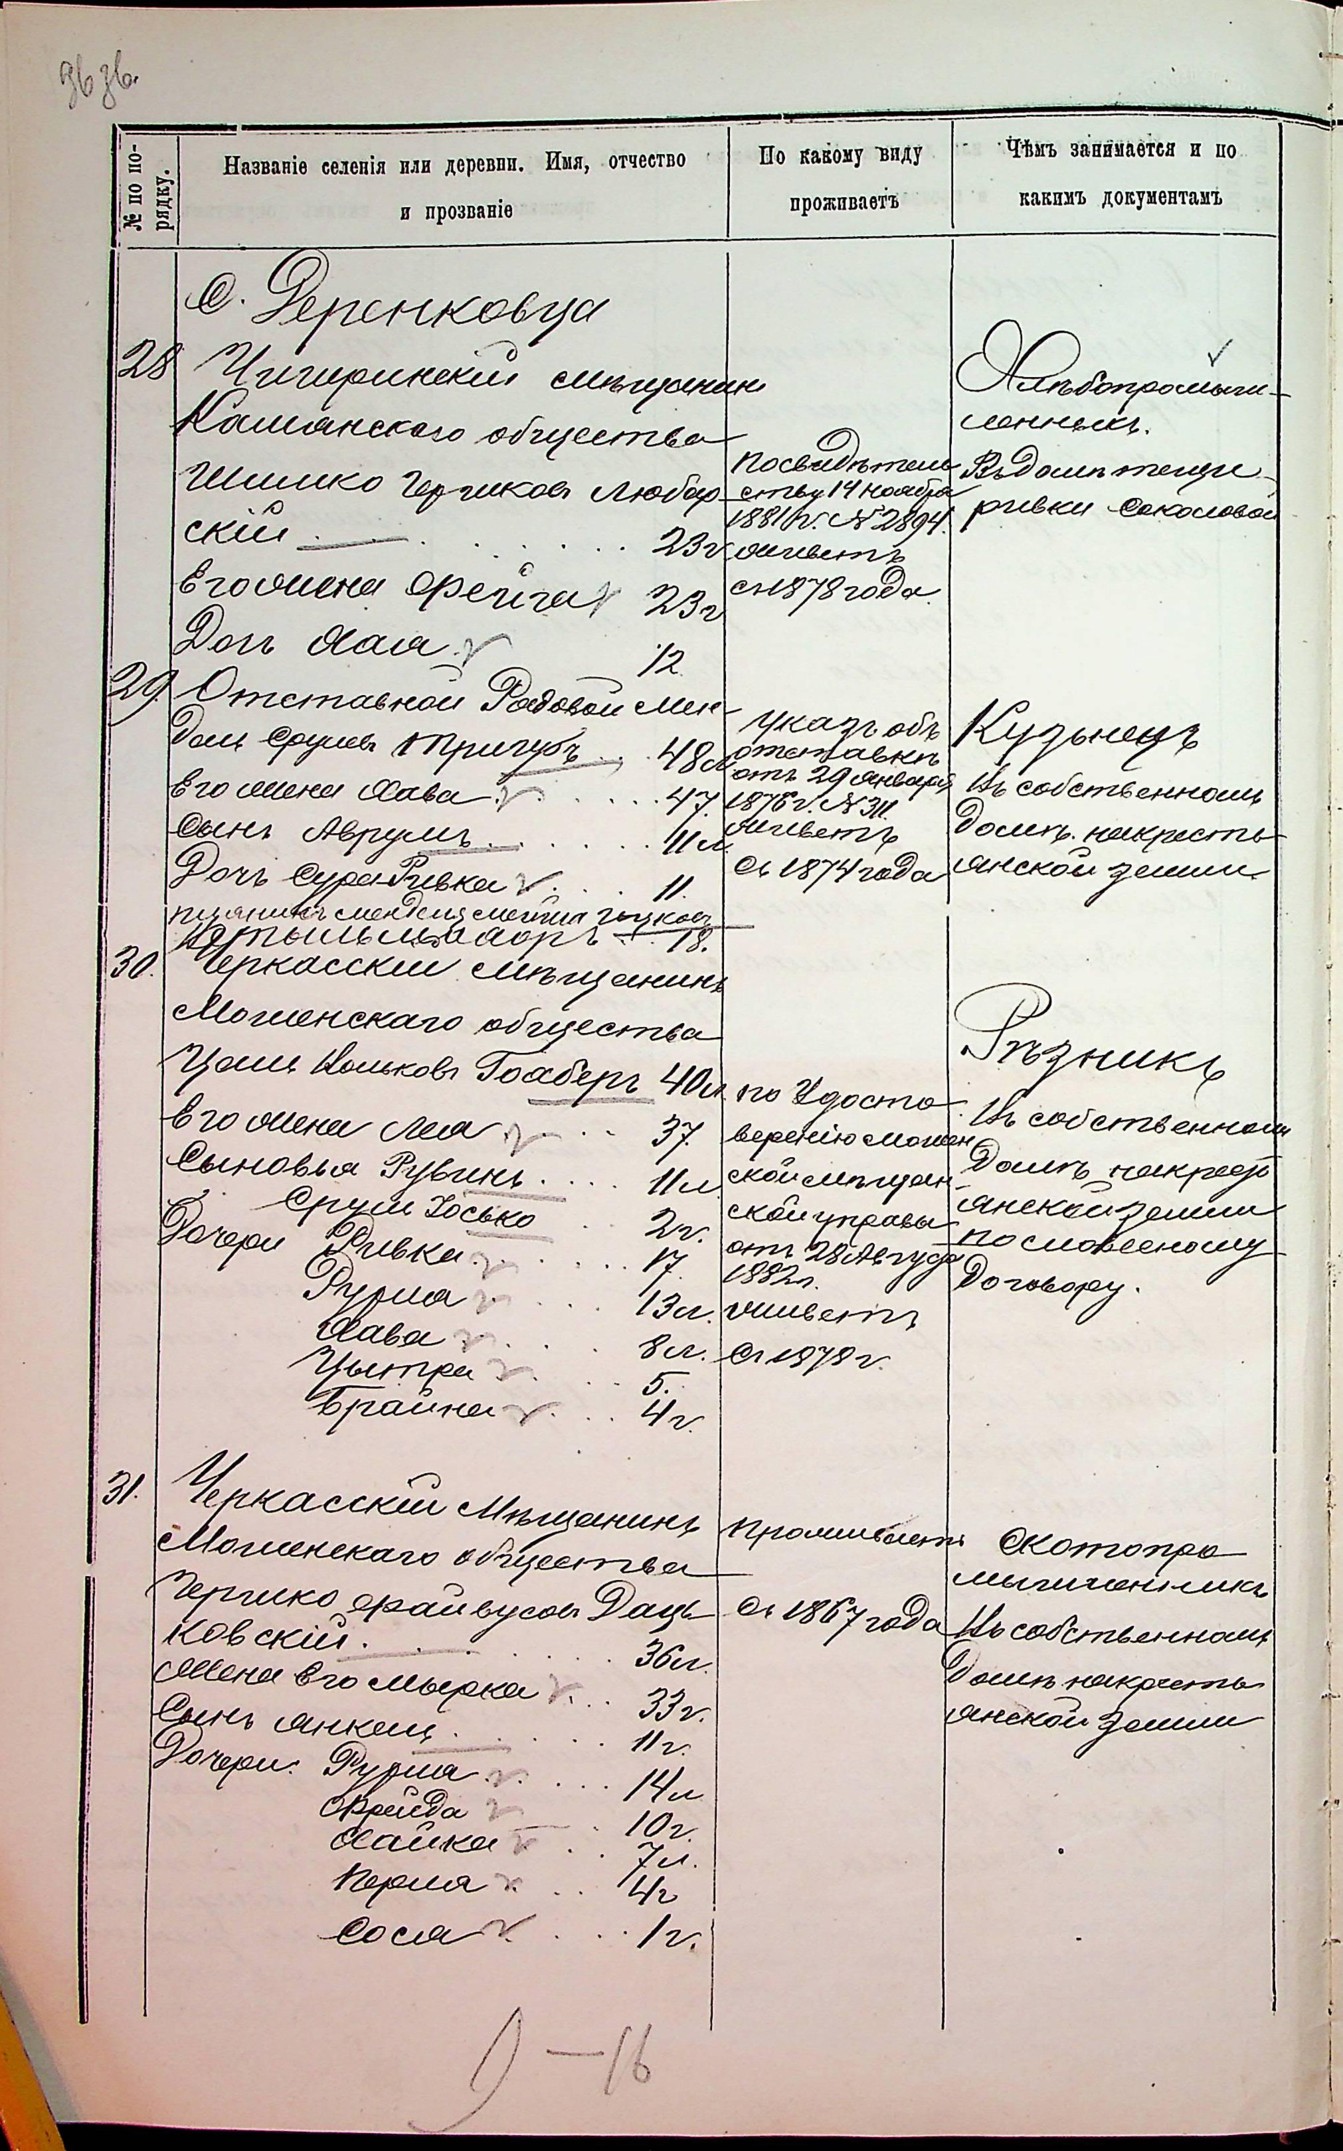 № по порядку.
Названіе селенія или деревни. Имя, отчество
и прозваніе
По какому виду
проживаетъ
Чѣмъ занимается и по
какимъ документамъ
С. Деренковца
28 Чигиринскій мѣщанинъ
Каменскаго общества
Шимко Гершковъ Любар-
скій 23 г
Его жена Фейга 23 г
Дочь Хая 12
по свидѣтель
ству 14 Ноября
1881 г. № 2894.
живетъ
съ 1878 года.
Хлѣбопромыш-
ленникъ.
Въ домѣ тещи
Ривки Соколовой
29. Отставной Рядовой Мен-
дель Срулевъ Тригубъ 48 л
Его жена Хава 47.
Сынъ Аврумъ 11 л
Дочь Сура-Ривка 11.
18.
Указъ объ
отставкѣ
отъ 29 Января
1876 г. № 311.
живетъ
съ 1874 года
Кузнецъ
Въ собственномъ
домѣ на кресть-
янской земли
30. Черкасскій мѣщанинъ
Мошенскаго общества
40 л.
Его жена Лея 37.
Сыновья Рувинъ 11 л
Сруль Іосько 2 г.
Дочери Ривка 17
Рухля 13 л.
Хава 8 л.
5.
Брайна 4 г.
по Удосто-
веренію Мошен
ской мѣщан-
ской управы
отъ 28 Августа
1882 г.
живетъ
съ 1878 г.
Рѣзникъ
Въ собственномъ
домѣ на кресть
янской земли
по словесному
договору.
31. Черкасскій Мѣщанинъ
Мошенскаго общества
Гершко Файвусовъ Даць-
ковскій. 36 л.
Жена его Мырка 33 г.
Сынъ Янкель 11 г.
Дочери: Рухля 14 л
Фрейда 10 г.
Хайка 7 л.
Перля 4 г
Сося 1 г.
Проживаетъ
съ 1867 года
Скотопро
мышленникъ
Въ собственномъ
домѣ на кресть
янской земли
9 — 16